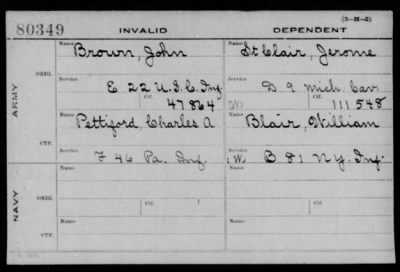 (3-H-2)
80349 INVALID DEPENDENT
Name Brown, John Name St Clair, Jerome
ORIG. Service E 22 U.S.C. Inf. Service D 9 Mich. Cav.
Ctf. 47864 (W) Ctf. 111548
ARMY
Name Pettiford, Charles A Name Blair, William
CTF. Service F 46 Pa. Inf. Service (W) B 81 N.Y. Inf.
NAVY
ORIG. Name Ctf. Name Ctf.
CTF. Name Name